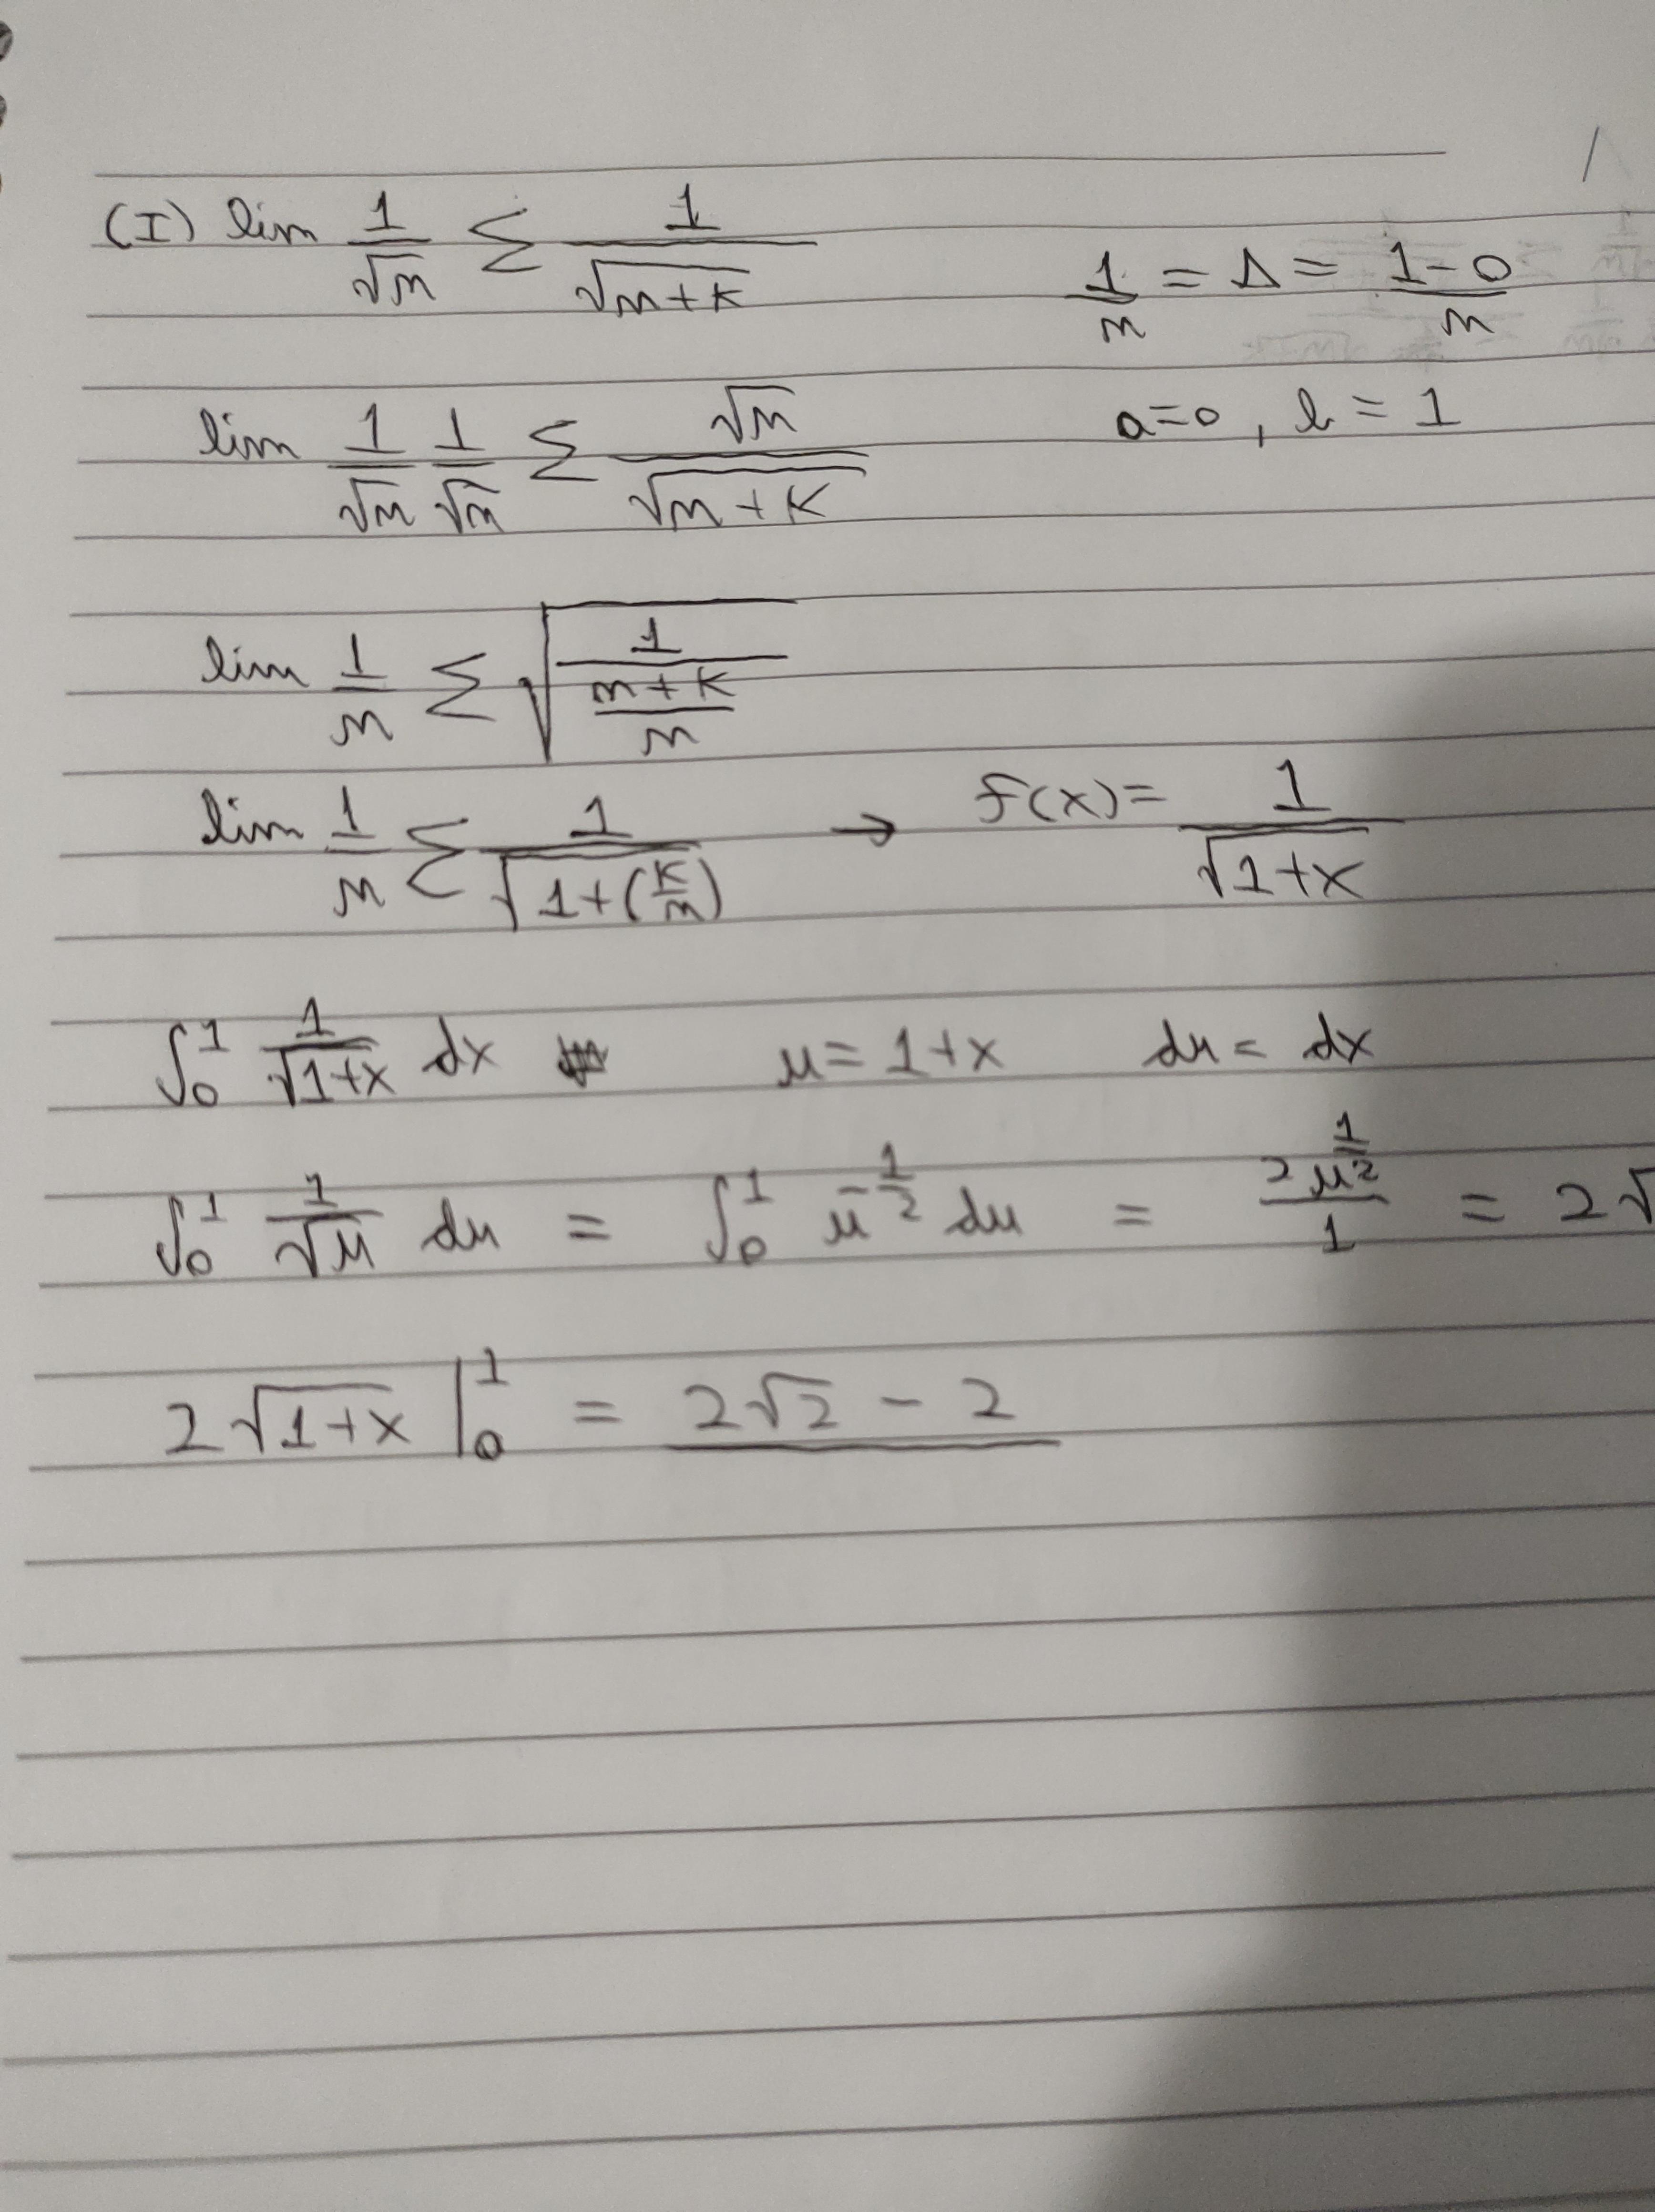 (I) lim 1/√n Σ 1/√(n+k)    1/n = Δ = (1-0)/n
lim 1/√n 1/√n Σ √n/√(n+k)    a=0, b=1
lim 1/n Σ √(1/((n+k)/n))
lim 1/n Σ 1/√(1+(k/n)) → f(x)= 1/√(1+x)
∫₀¹ 1/√(1+x) dx    u=1+x    du= dx
∫₀¹ 1/√u du = ∫₀¹ u^(-1/2) du = 2u^(1/2)/1 = 2√
2√(1+x) |₀¹ = 2√2 - 2